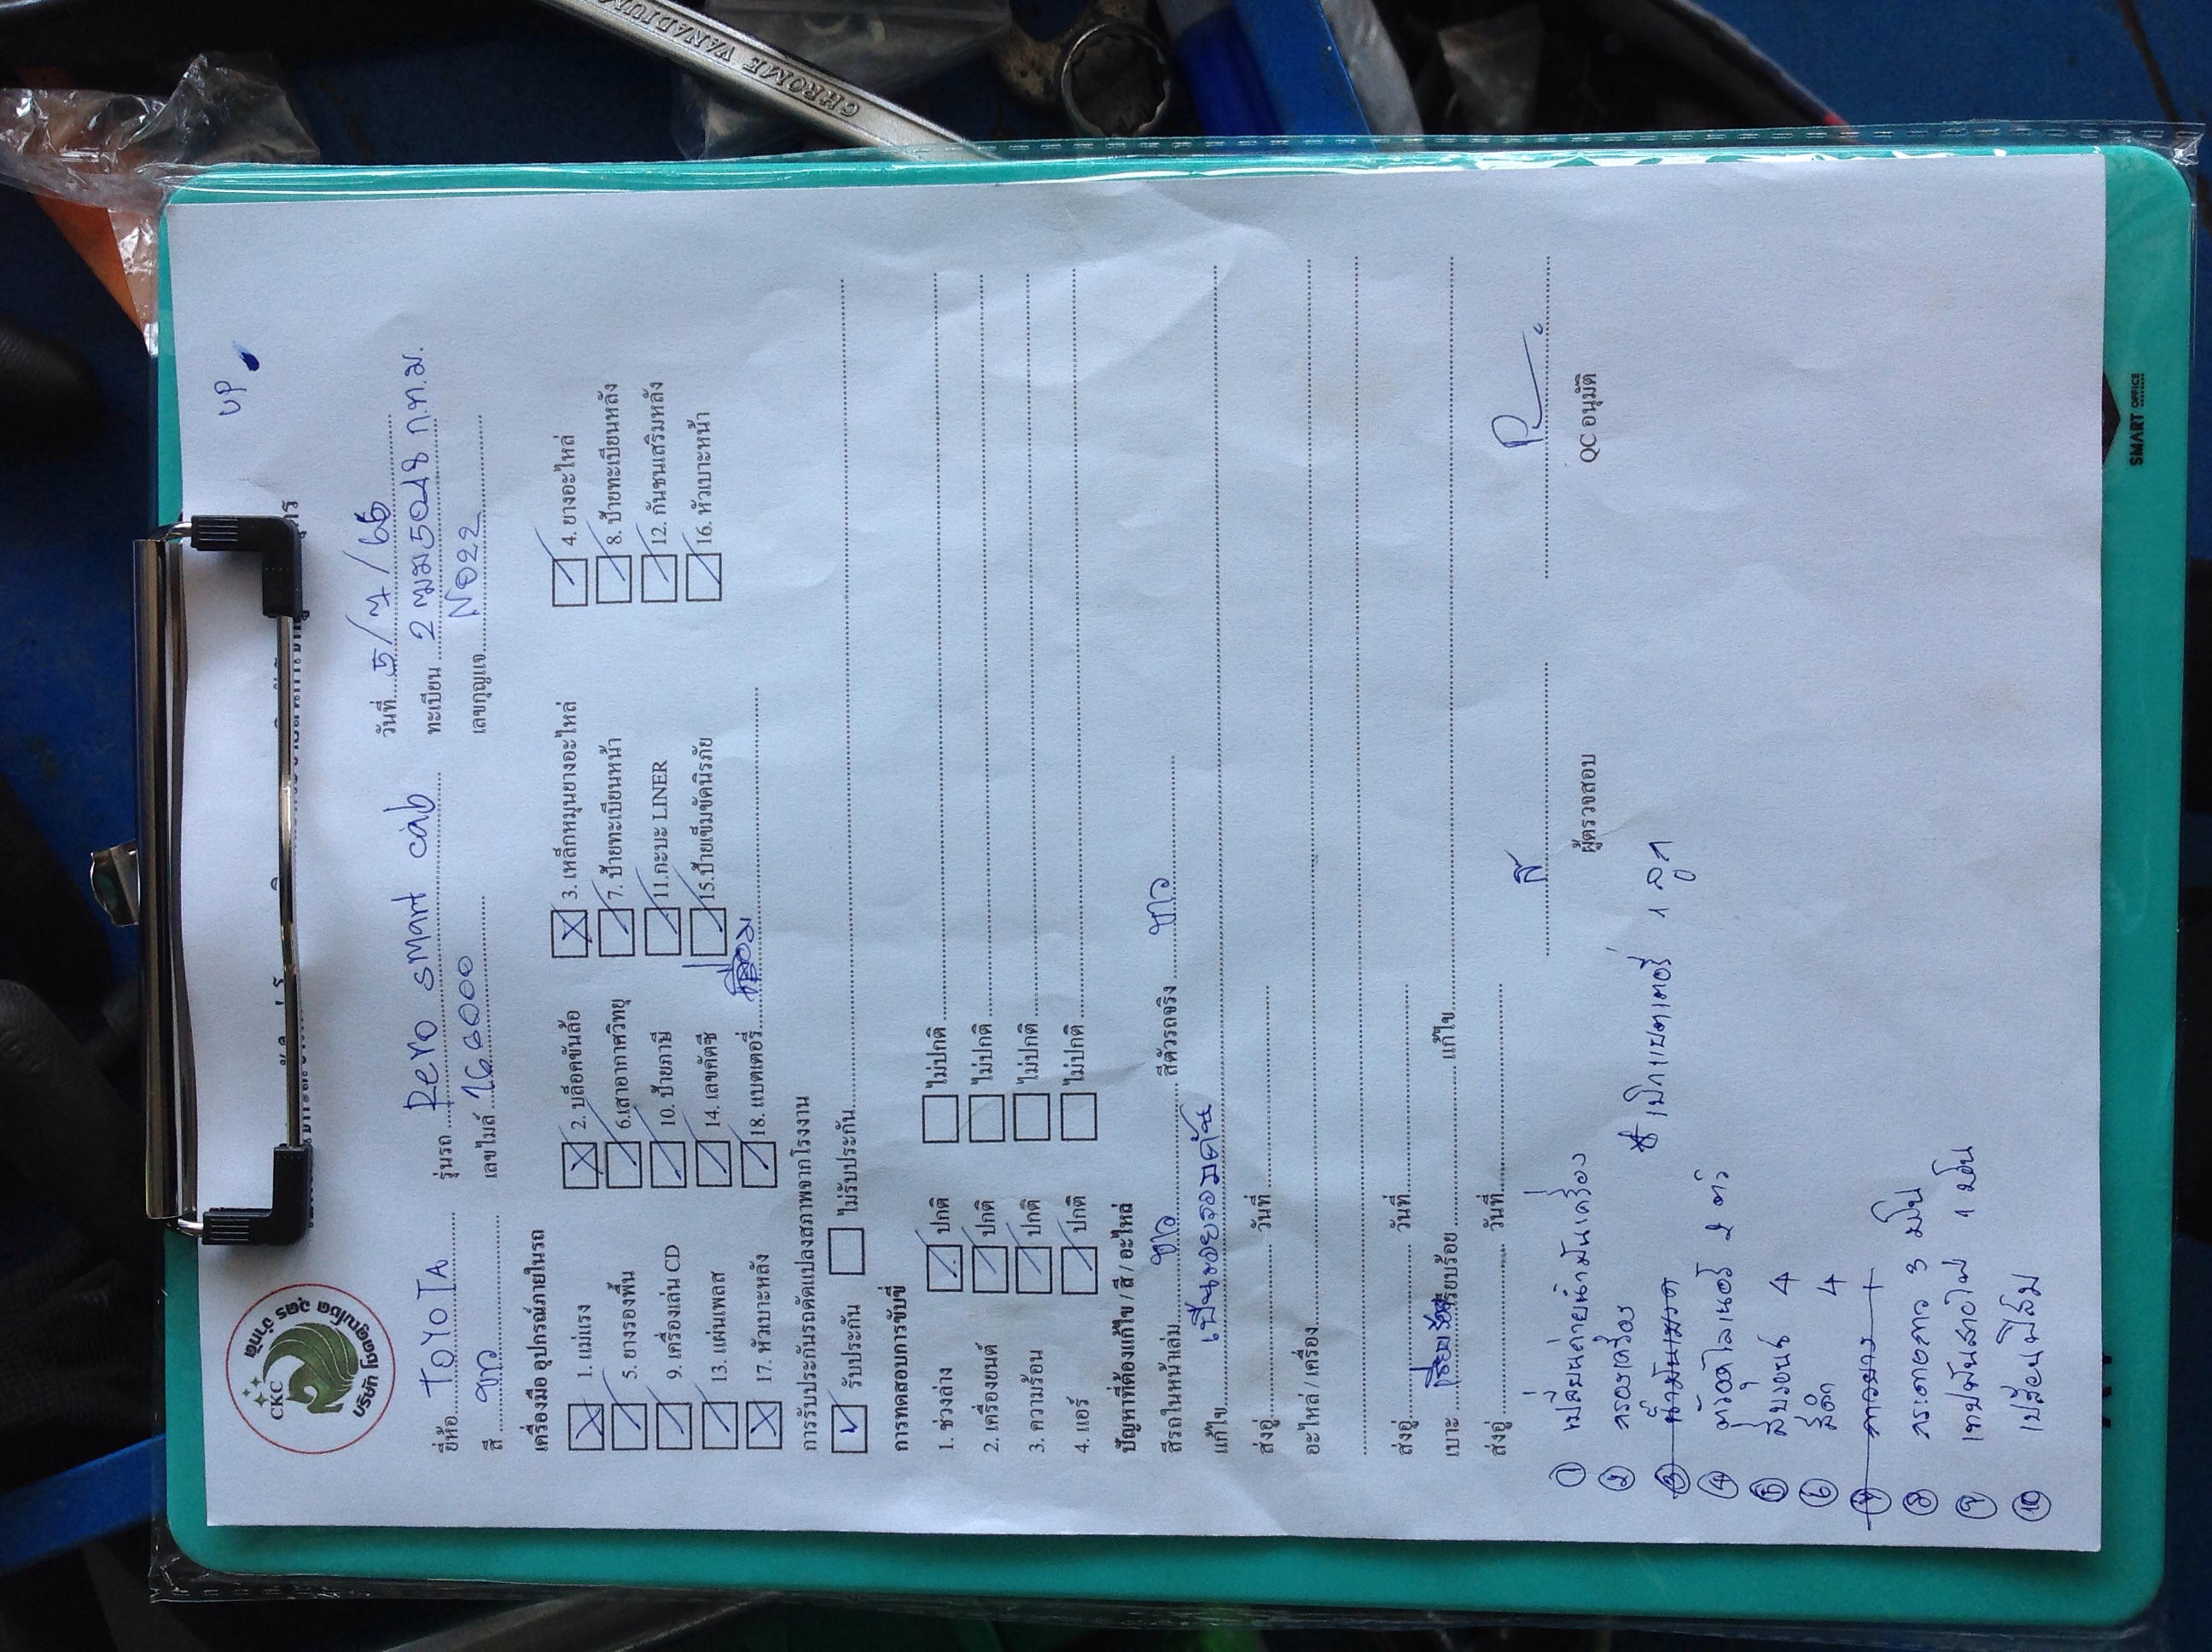 CHROME VANADIUM
UP
CKC
บริษัท ชัยเจริญโชค อุดร จำกัด
ยี่ห้อ TOYOTA รุ่นรถ Revo smart cab วันที่ 5/7/66
สี ขาว เลขไมล์ 166000 ทะเบียน 2ฒฆ 5048 ก.ท.ม.
เลขกุญแจ N022
เครื่องมือ อุปกรณ์ภายในรถ
1. แม่แรง 2. บล็อคขันล้อ 3. เหล็กหมุนยางอะไหล่ 4. ยางอะไหล่
5. ยางรองพื้น 6.เสาอากาศวิทยุ 7. ป้ายทะเบียนหน้า 8. ป้ายทะเบียนหลัง
9. เครื่องเล่น CD 10. ป้ายภาษี 11.กะบะ LINER 12. กันชนเสริมหลัง
13. แผ่นเพลส 14. เลขคัดซี 15.ป้ายเข็มขัดนิรภัย 16. หัวเบาะหน้า
17. หัวเบาะหลัง 18. แบตเตอรี่
การรับประกันรถดัดแปลงสภาพจากโรงงาน
รับประกัน ไม่รับประกัน
การทดสอบการขับขี่
1. ช่วงล่าง ปกติ ไม่ปกติ
2. เครื่องยนต์ ปกติ ไม่ปกติ
3. ความร้อน ปกติ ไม่ปกติ
4. แอร์ ปกติ ไม่ปกติ
ปัญหาที่ต้องแก้ไข / สี / อะไหล่
สีรถในหน้าเล่ม ขาว สีตัวรถจริง ขาว
แก้ไข
ส่งอู่ วันที่
อะไหล่ / เครื่อง
ส่งอู่ วันที่
เบาะ เรียบร้อย แก้ไข
ส่งอู่ วันที่
ผู้ตรวจสอบ QC อนุมัติ
① เปลี่ยนถ่ายน้ำมันเครื่อง
② กรองเครื่อง * เบิกแบตเตอรี่ 1 ลูก
③ น้ำมันเบรค
④ ตัวอดไลเนอร์ 2 ตัว
⑤ 4
⑥ 4
⑦ กาวยาง 1
⑧ กระดาษกาว 3 ม้วน
⑨ เทปพันสายไฟ 1 ม้วน
⑩
SMART OFFICE